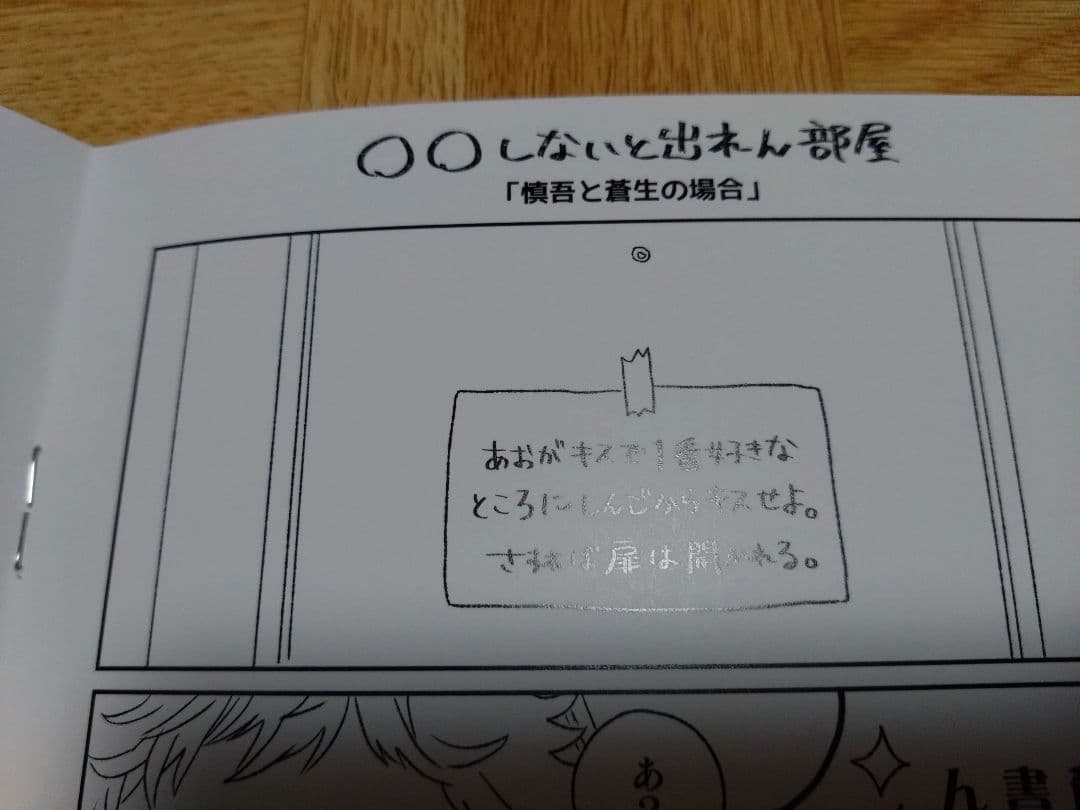 〇〇しないと出れん部屋
「慎吾と蒼生の場合」
あおがキスで1番好きな
ところにしんごからキスせよ。
さすれば扉は開かれる。
あ?
ん書